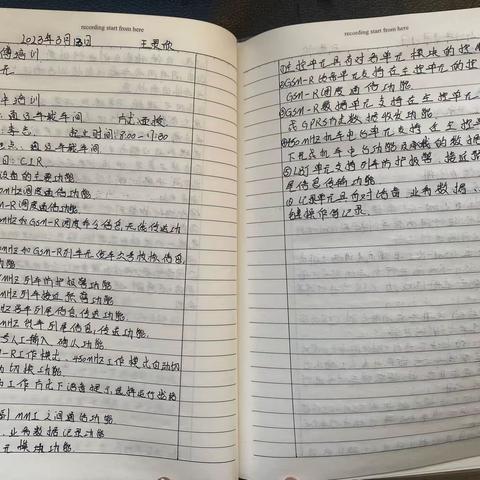 recording start from here
2023年3月13日
培训
元.
培训
通辽车载车间 方式:面授
李志. 起止时间:8:00-17:30
点:通辽车载车间
目:CIR
设备的主要功能
MHz调度通信功能.
M-R调度通信功能.
MHz和GSM-R调度命令信息无线传送功
MHz和GSM-R列车无线车次号校核信息
功能
MHz列车防护报警功能
MHz列车接近预警功能
Hz客车列尾信息传送功能
MHz货车列尾信息传送功能.
号人工输入、确认功能
M-R工作模式、450MHz工作模式自动切
动切换功能
工作方式下语音提示选择运行线路
到MMI之间通话功能
、业务数据记录功能
元 换功能
recording start from here
①主控单元具有对各单元、模块的控
②GSM-R话音单元支持在主控单元的控
GSM-R调度通信功能.
③GSM-R数据单元支持在主控单元
成GPRS方式数据收发功能
④450MHz机车电台单元支持在主控
下完成机车电台功能及承载的数据
⑤LBJ单元支持列车防护报警、接近预
尾信息传输功能
⑥记录单元具有对语音、业务数据、
键操作的记录.